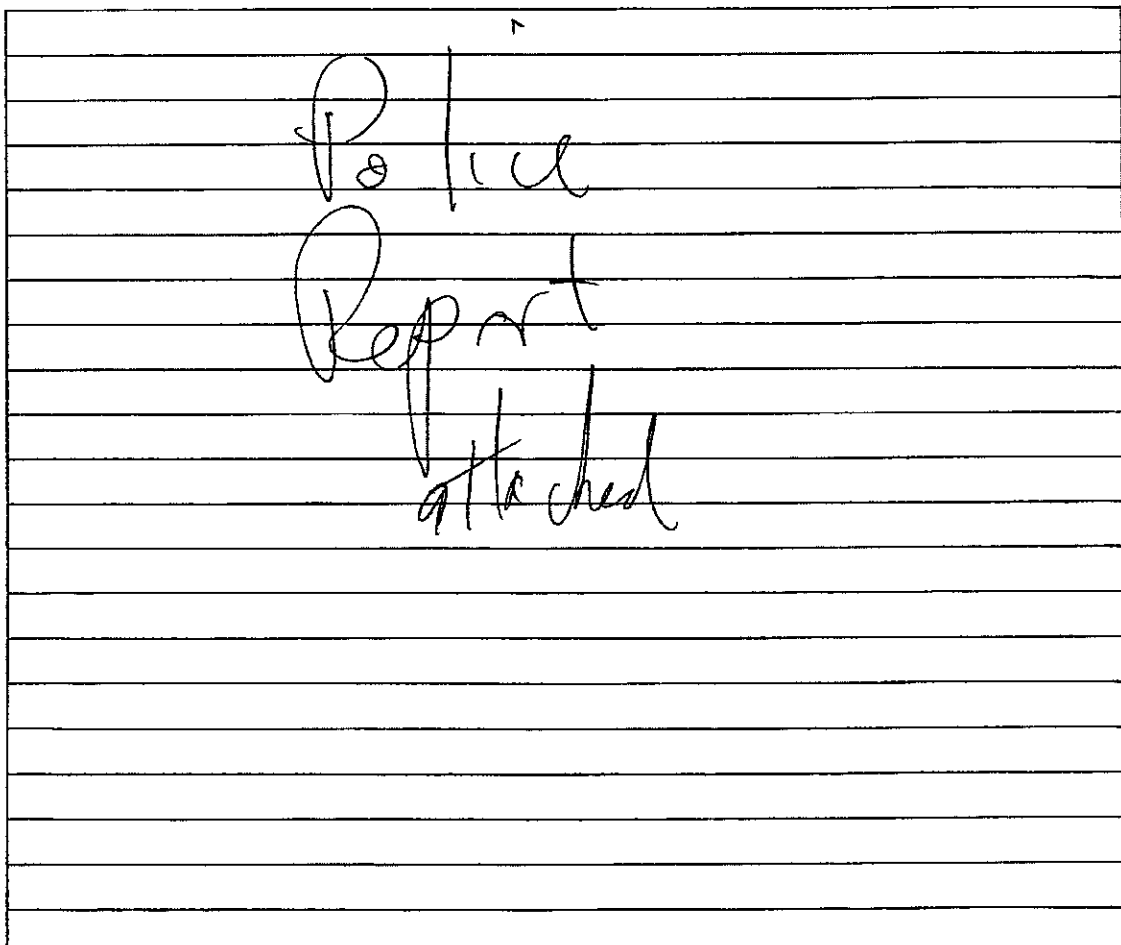 Police
Report
attached